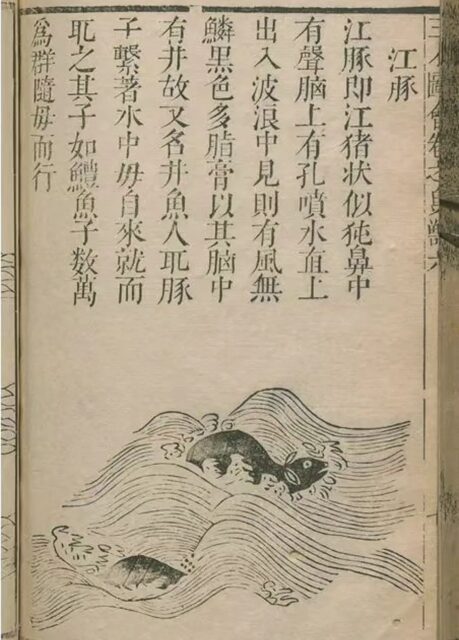 江豚
江豚即江猪状似㹠鼻中
有聲脑上有孔噴水直上
出入波浪中見則有風無
鱗黑色多脂膏以其脑中
有井故又名井魚人取豚
子繫著水中毋自來就而
取之其子如鱧魚子数萬
爲群隨毋而行